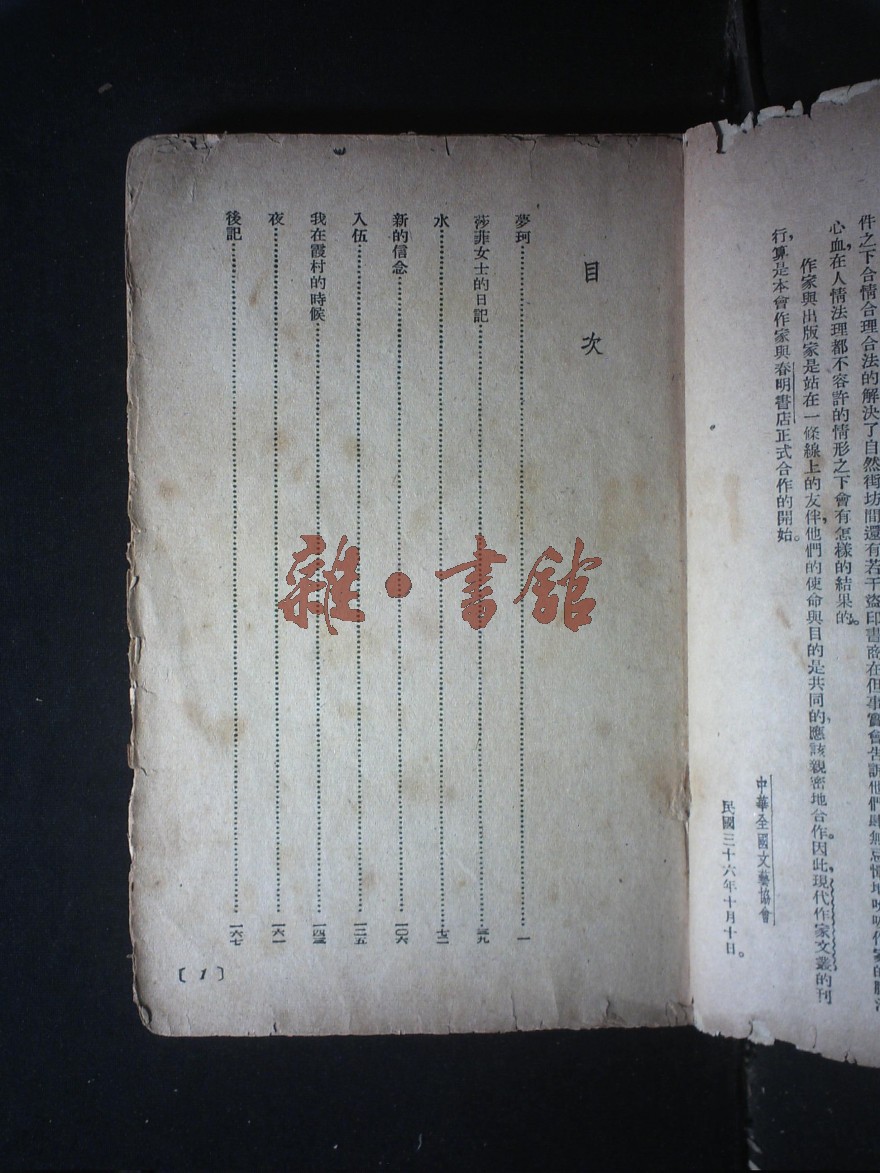 件之下合情合理合法的解決了自然街坊間還有若干盜印書商在但事實會告訴他們肆無忌憚地吮吸作家的
心血，在人情法理都不容許的情形之下會有怎樣的結果的。
作家與出版家是站在一條線上的友伴，他們的使命與目的是共同的，應該親密地合作。因此，現代作家文叢的刊
行，算是本會作家與春明書店正式合作的開始。
中華全國文藝協會
民國三十六年十月十日。
目次
夢珂 一
莎菲女士的日記 三九
水 七二
新的信念 一〇六
入伍 一二五
我在霞村的時候 一四三
夜 一六一
後記 一六七
〔1〕
雜·書館